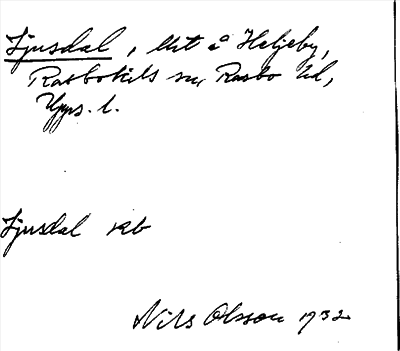 Ljusdal, lht å Heljeby,
Rasbokils sn, Rasbo hd,
Upps. l.
Ljusdal kb
Nils Olsson 1932